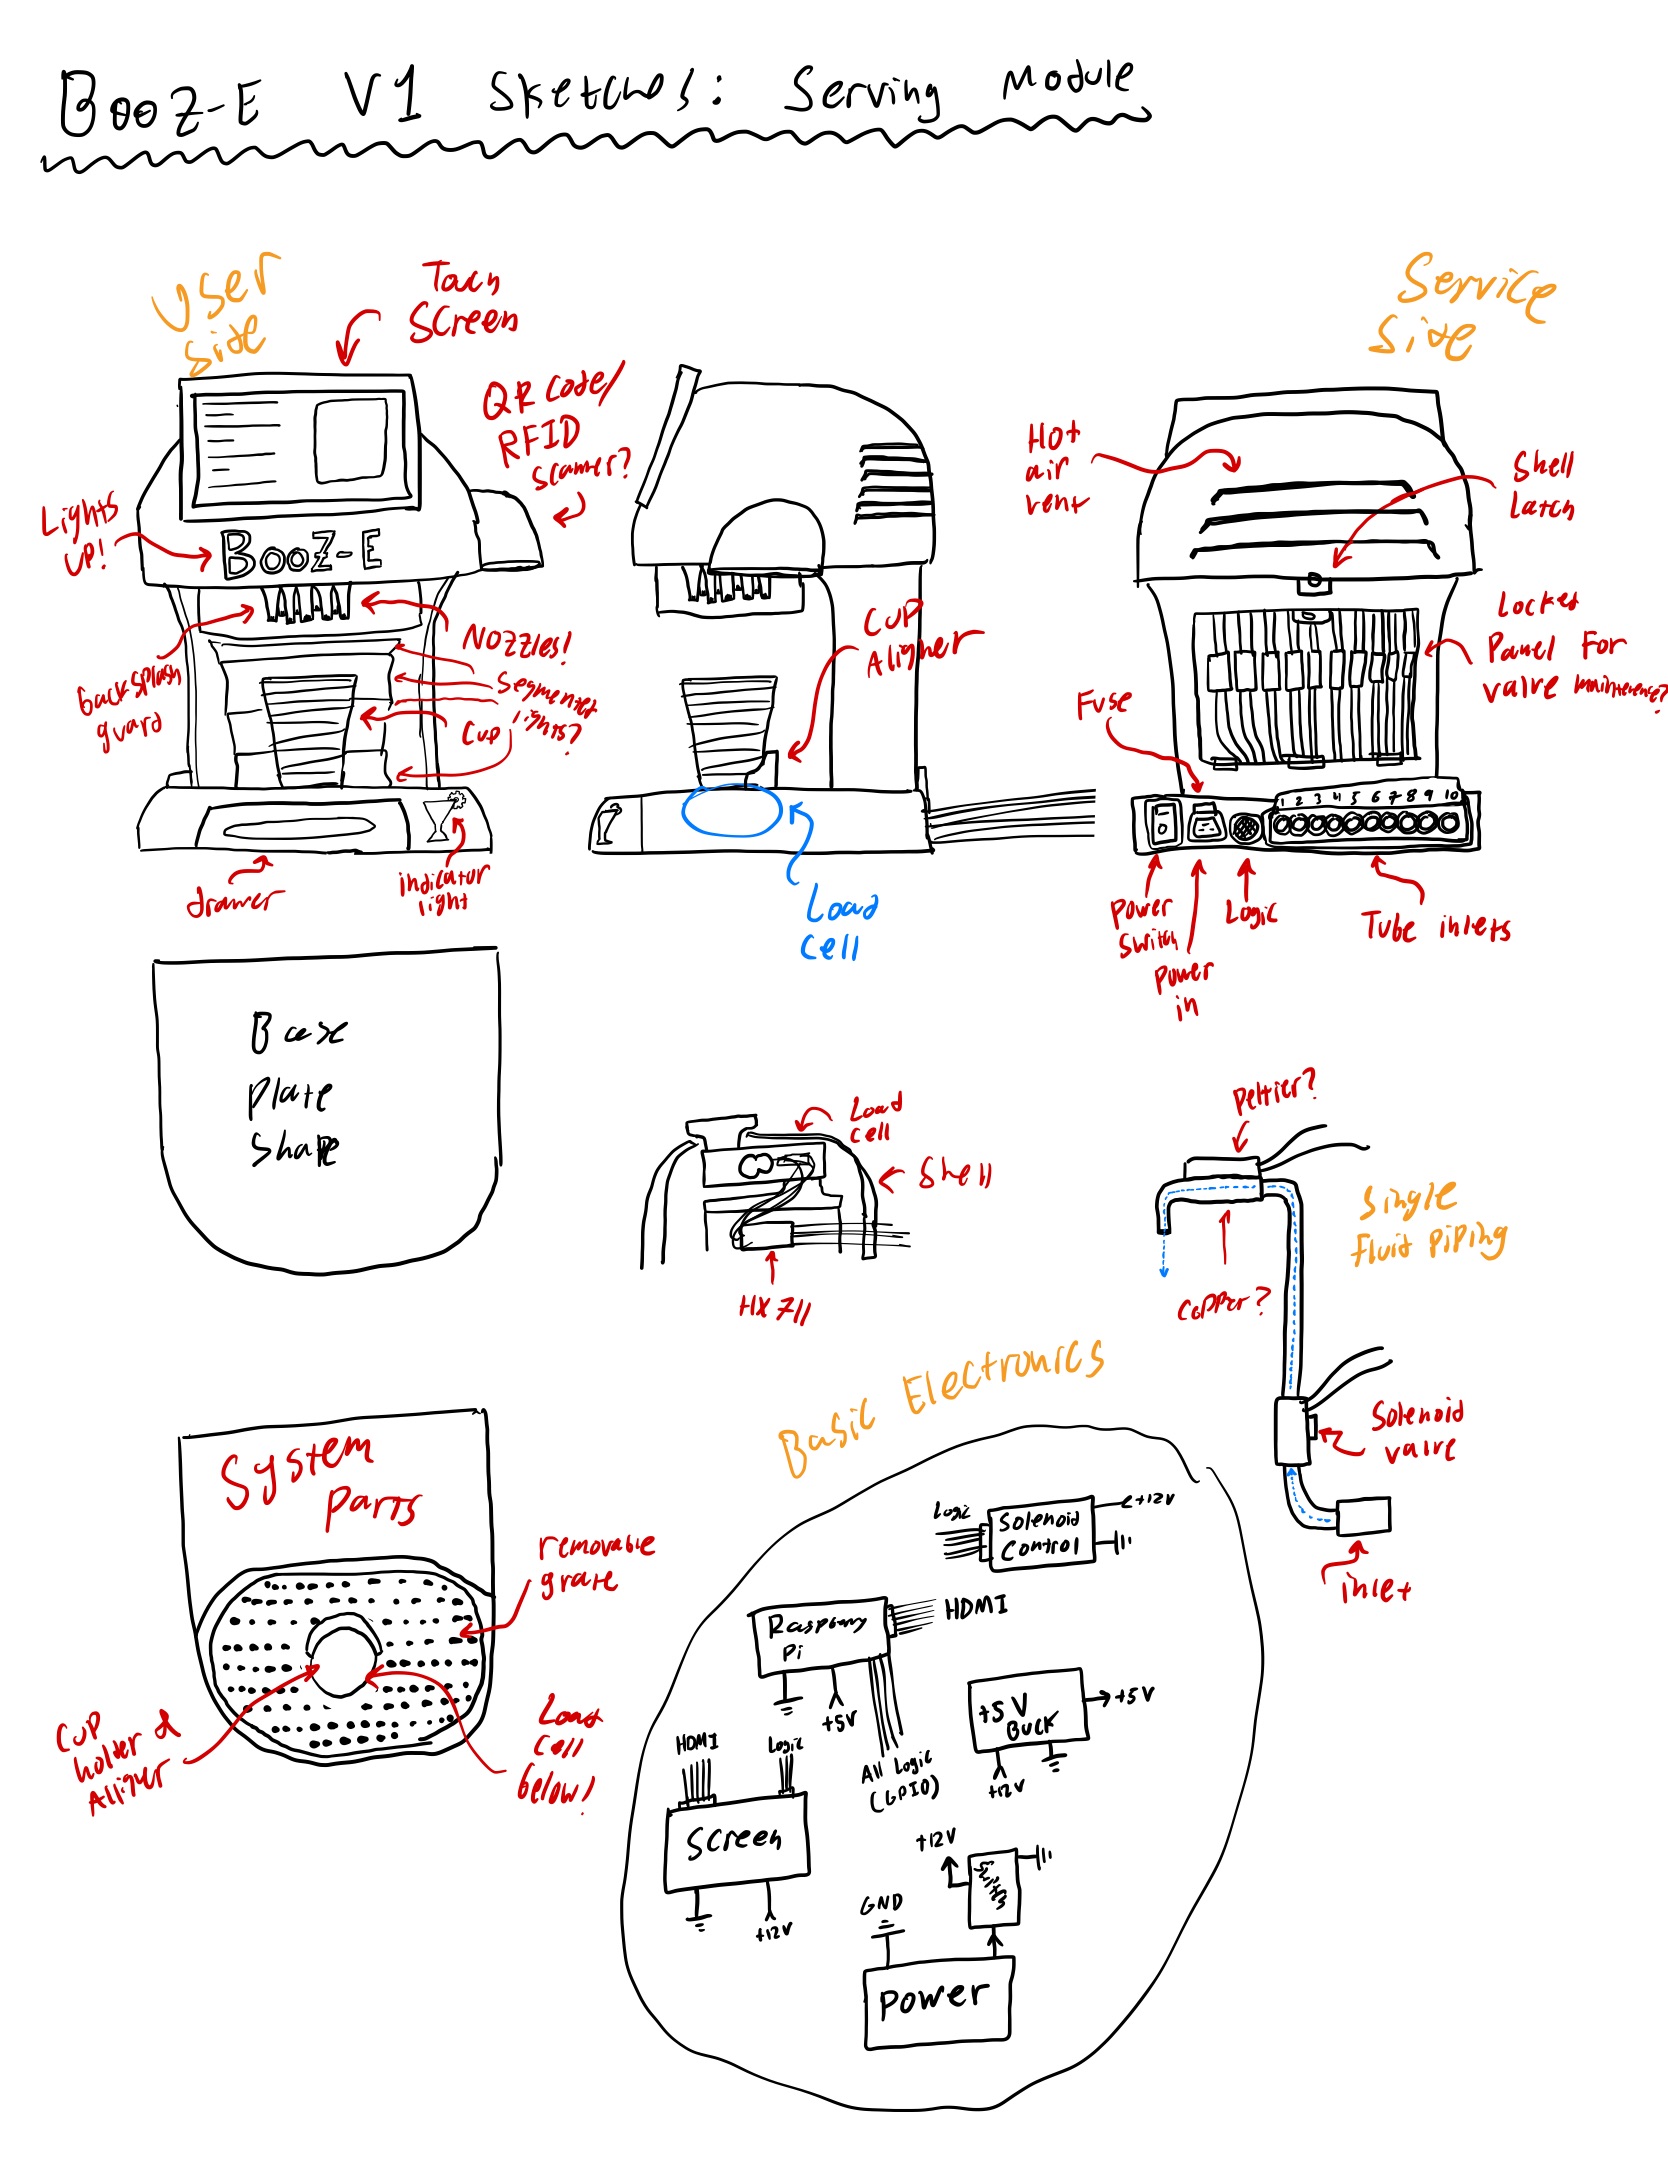 BooZ-E V1 Sketches: Serving Module
User
Side
Touch
Screen
QR Code/
RFID
Scanner?
Lights
UP!
BooZ-E
Nozzles!
backsplash
guard
Segmented
lights?
Cup
drawer
indicator
light
Cup
Aligner
Load
Cell
Service
Side
Hot
air
vent
Shell
Latch
Locked
Panel For
valve maintenence?
Fuse
1 2 3 4 5 6 7 8 9 10
Power
Switch
Power
in
Logic
Tube inlets
Base
Plate
Shape
Load
Cell
Shell
HX711
Peltier?
Copper?
Single
Fluid Piping
Solenoid
valve
inlet
System
Parts
removable
grate
Cup
holder &
Alligner
Load
Cell
below!
Basic Electronics
Logic
Solenoid
Control
+12V
Raspberry
Pi
HDMI
+5V
All Logic
(GPIO)
+5V
Buck
+5V
+12V
HDMI
Logic
Screen
+12V
+12V
GND
Power